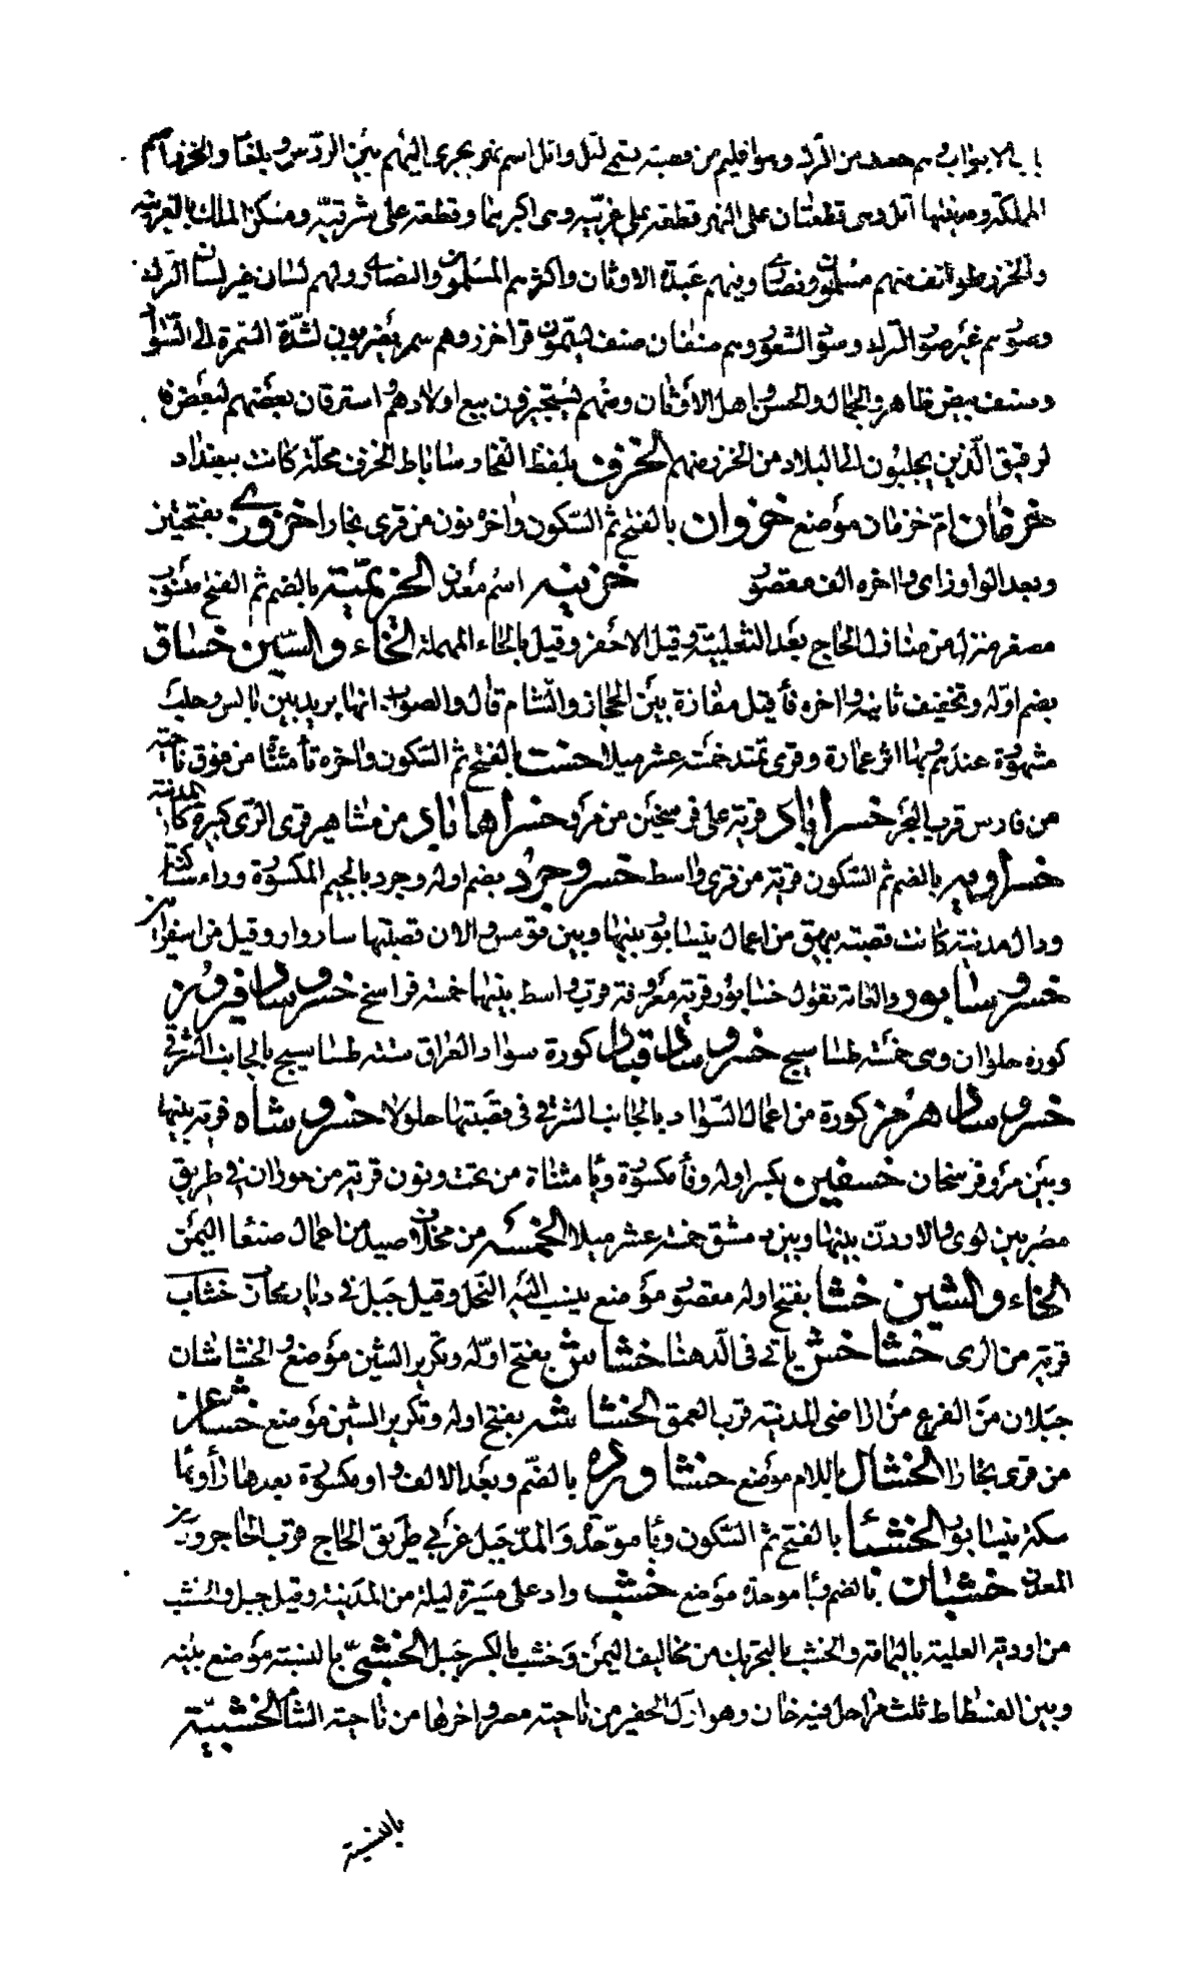 باب الابواب وهم صنف من الترك وهو اقليم من قصبته تسمى اتل واتل اسم نهر يجرى اليهم بين الروس وبلغار والخزر اسم
المملكة ومدينتها اتل وهى قطعتان على النهر قطعة على غربيه وهى اكبرهما وقطعة على شرقيه ومسكن الملك بالغربية
والخزر طوائف منهم مسلمون ونصارى وفيهم عبدة الاوثان واكثرهم المسلمون والنصارى ولهم لسان غير لسان الترك
وصورهم غير صور الترك وهم سود الشعور وهم صنفان صنف يسمون قراخزر وهم سمر يضربون لشدة السمرة الى السواد
وصنف بيض ظاهرو الجمال والحسن واهل الاوثان منهم يستجيزون بيع اولادهم واسترقاق بعضهم لبعض
لرقيق الذين يجلبون الى البلاد من الخزر منهم الخزف بلفظ الفخار ساباط الخزف محلة كانت ببغداد
خزمان ام خزمان موضع خزوان بالفتح ثم السكون واخره نون من قرى بخارا خزوزى بفتحتين
وبعد الواو زاى واخره الف مقصور خزينه اسم معدن الخزيمية بالضم ثم الفتح منسوب
مصغر منزلة من منازل الحاج بعد الثعلبية وقيل الاجفر وقيل بالحاء المهملة الخاء والسين خساق
بضم اوله وتخفيف ثانيه واخره فاء قيل مفازة بين الحجاز والشام قال والصواب انها برية بين بالس وحلب
مشهورة عندهم بها اثر عمارة وقرى تمتد خمسة عشر ميلا خست بالفتح ثم السكون واخره تاء مثناة من فوق ناحية
من فارس قرب البحر خسراباد قرية على فرسخين من مرو خسراهاباد من مشاهير قرى الرى كبيرة كالمدينة
خسراويه بالضم ثم السكون قرية من قرى واسط خسروجرد بضم اوله وجرد بالجيم المكسورة وراء ساكنة
ودال مدينة كانت قصبة بيهق من اعمال نيسابور بينها وبين قومس والان قصبتها سابزوار وقيل من اسفراين
خسروسابور والعامة تقول خسابور قرية معروفة قرب واسط بينهما خمسة فراسخ خسروساد فيروز
كورة حلوان وهى خمسة طساسيج خسروساد قباد كورة سواد العراق ستة طساسيج بالجانب الشرقى
خسروساد هرمز كورة من اعمال السواد بالجانب الشرقى فى قصبتها جلولا خسروشاه قرية بينها
وبين مرو فرسخان خسفين بكسر اوله وفاء مكسورة ويا مثناة من تحت ونون قرية من حوران فى طريق
مصر بين نوى والاردن بينها وبين دمشق خمسة عشر ميلا الخمسه من مخلاف صيد من اعمال صنعا اليمن
الخاء والشين خشا بفتح اوله مقصور موضع ينسب اليه النخل وقيل جبل فى ديار محارب خشاب
قرية من الرى خشاخش ياتى فى الدهنا خشاش بفتح اوله وتكرير الشين موضع والخشاشان
جبلان من الفرع من اراضى المدينة قرب العمق الخشاشه بفتح اوله وتكرير الشين موضع خشاغر
من قرى بخارا الخشال باللام موضع خشاوره بالضم وبعد الالف واو مكسورة بعدها راء وها
سكة نيسابور الخشبا بالفتح ثم السكون وبا موحدة والمد جبل غربى طريق الحاج قرب الحاجر ودون
المعدن خشبان بالضم وبا موحدة موضع خشب واد على مسيرة ليلة من المدينة وقيل جبل والخشب
من اودية العالية باليمامة والخشب بالتحريك من مخاليف اليمن وخشب بالكسر جبل الخشبى بالنسبة موضع بينه
وبين الفسطاط ثلث مراحل فيه خان وهو اول الجفار من ناحية مصر واخرها من ناحية الشام الخشبية
بالنسبة